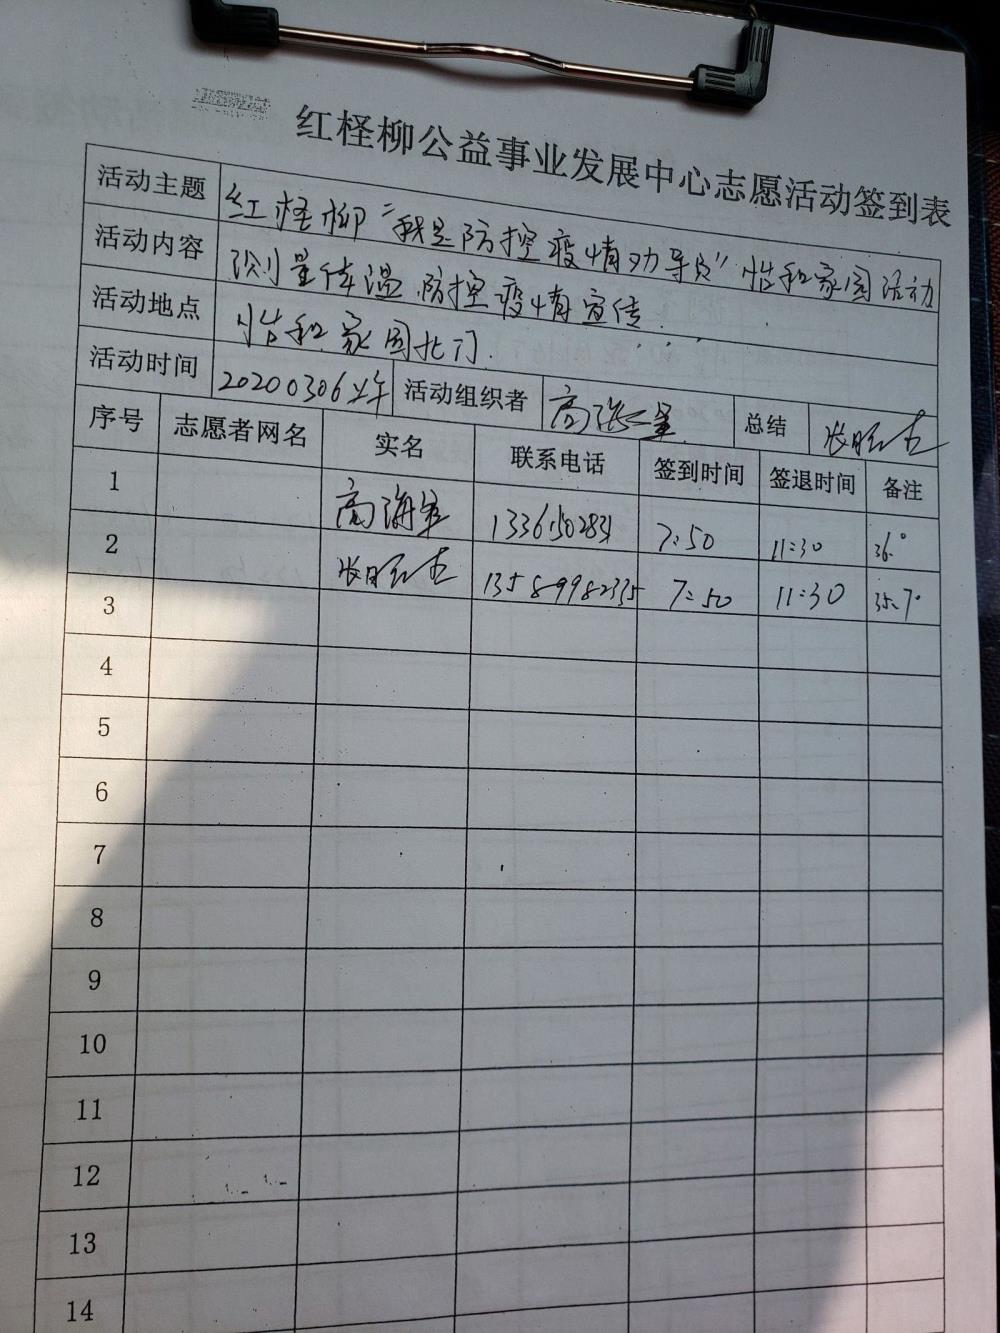 红柽柳公益事业发展中心志愿活动签到表
活动主题 红柽柳“我是防控疫情劝导员”怡和家园活动
活动内容 测量体温 防控疫情宣传.
活动地点 怡和家园北门.
活动时间 20200306上午 活动组织者 高海 总结
序号 志愿者网名 实名 联系电话 签到时间 签退时间 备注
1 高海 7:50 11:30 36.°
2 13589982335 7:50 11:30 35.7°
3
4
5
6
7
8
9
10
11
12
13
14